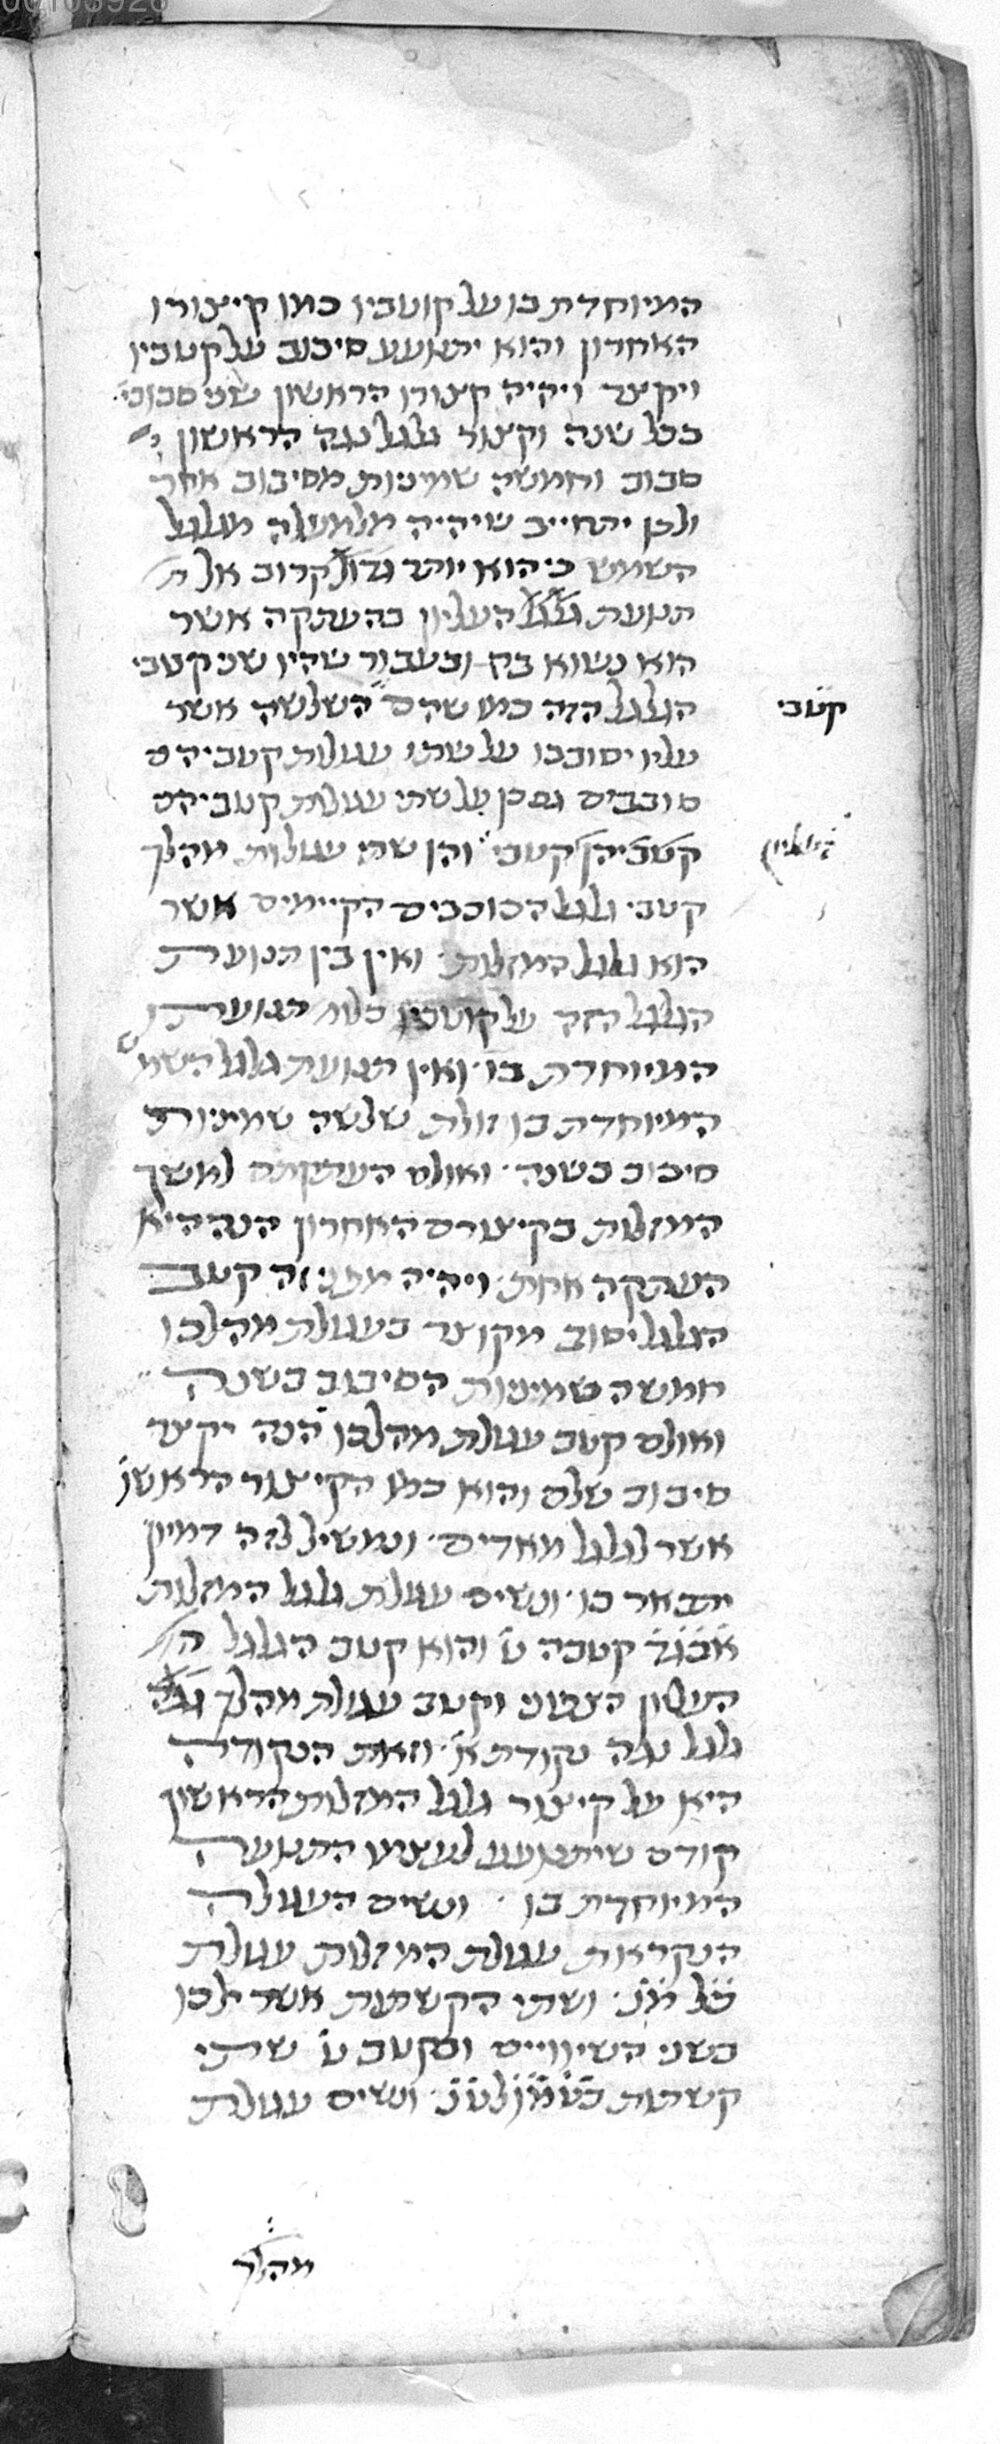 המיוחדת בו על קוטביו כמו קיצורו
האחרון והוא יתנועע סיבוב על קטביו
ויקצר ויהיה קצורו הראשון שני סבובי'
בכל שנה וקצור גלגל נגה הראשון
סבוב וחמשה שמיניות מסיבוב אחד
ולכן יתחייב שיהיה מלמעלה מגלגל
השמש כי הוא יותר קרוב אל
תנועת העליון בהעתקה אשר
הוא נשוא בה ובעבור שהיו שני קטבי
הגלגל הזה כמו שהם השלשה אשר
קטבי
עליו יסובבו על שתי עגולות קטביהם
סובבים גם כן על שתי עגולות קטביהם
קטביהן קטבי והן שתי עגולות מהלך
העליון
קטבי גלגל הכוכבים הקיימים אשר
הוא גלגל המזלות ואין בין תנועת
הגלגל הזה על קוטביו כלומ' תנועתו
המיוחדת בו ואין תנועת גלגל השמש
המיוחדת בו זולת שלשה שמיניות
סיבוב בשנה ואולם העתקתה למשך
המזלות בקיצורם האחרון הנה היא
העתקה אחת ויהיה מפני זה קטב
הגלגל יסוב מקוצר בעגולת מהלכו
חמשה שמיניות הסיבוב בשנה
ואולם קטב עגולת מהלכו הנה יקצר
סיבוב שלם והוא כמו הקיצור הראשון
אשר לגלגל מאדים ונמשיל לזה דמיון
יתבאר בו ונשים עגולת גלגל המזלות
אבגד קטבה ט והוא קטב הגלגל
העליון הצפוני וקטב עגולת מהלך
גלגל נגה נקודת א וזאת הנקודה
היא על קיצור גלגל המזלות הראשון
קודם שיתנועע לעצמו התנועה
המיוחדת בו ונשים העגולה
הנקראת עגולת המזלות עגולת
כל מנ ושתי הקשתות אשר ילכו
בשני השיוויים ובקטב ט שתי
קשתות כטמ ולטנ ונשים עגולת
מהלך